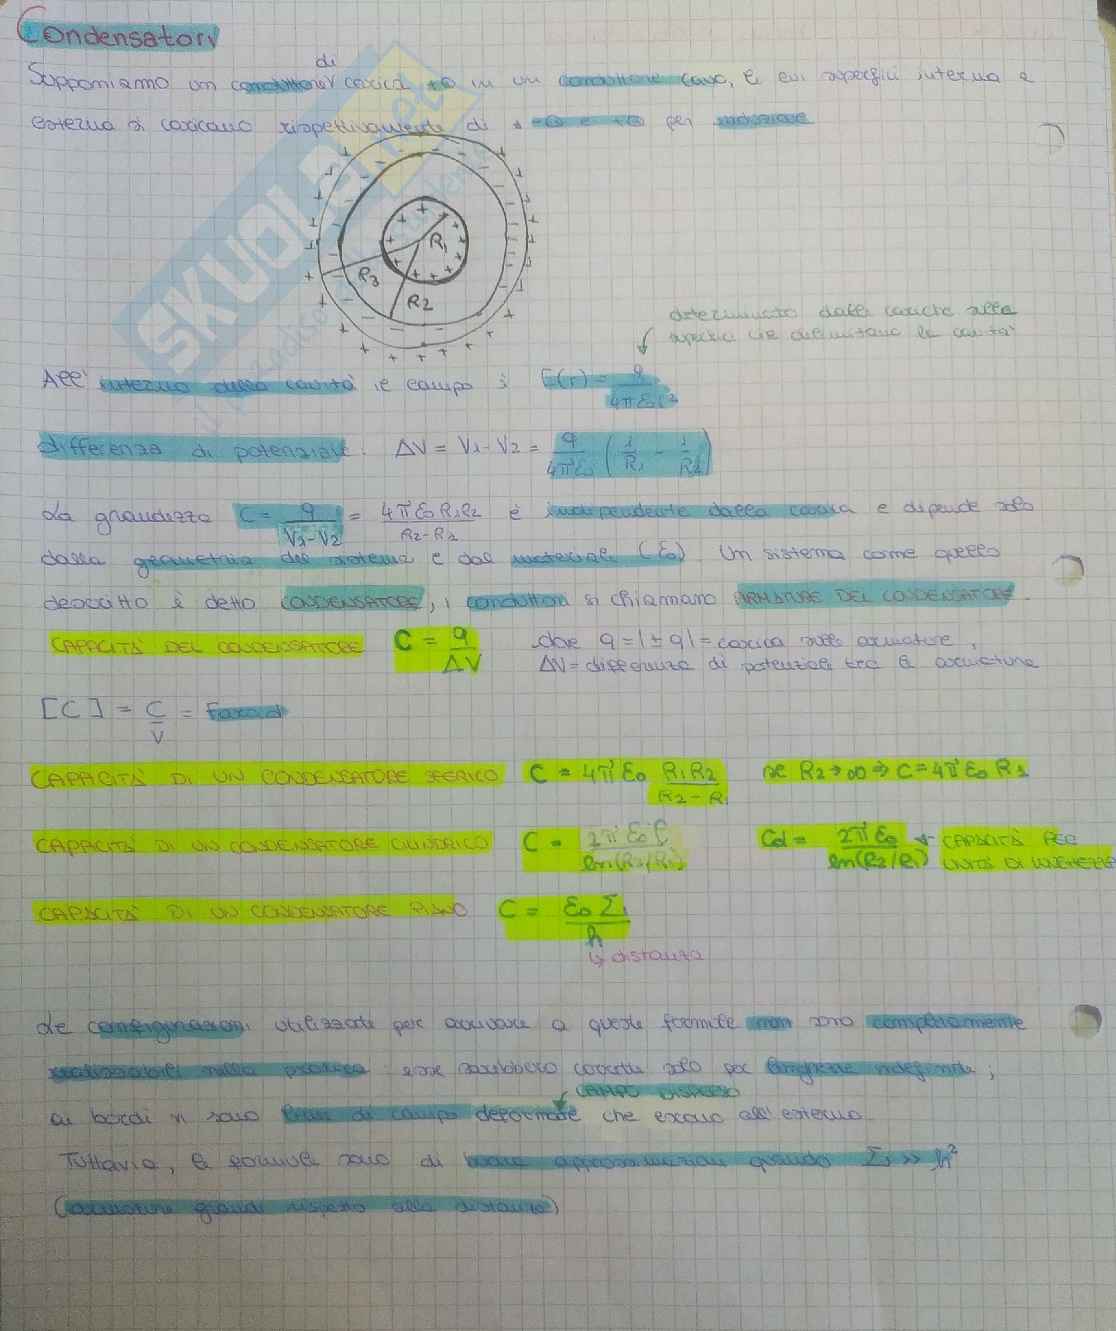 Condensatori
Supponiamo un conduttore di carica +Q in un conduttore cavo, le cui superfici interna e
esterna si caricano rispettivamente di -Q e +Q per induzione
R1
R3
R2
determinato dalle cariche sulle
superfici che delimitano la cavità
All'interno della cavità il campo è E(r) = q / 4πε0r²
differenza di potenziale: ΔV = V1 - V2 = q / 4πε0 (1/R1 - 1/R2)
La grandezza C = q / V1-V2 = 4πε0R1R2 / R2-R1 è indipendente dalla carica e dipende solo
dalla geometria del sistema e dal materiale (ε0). Un sistema come quello
descritto è detto CONDENSATORE, i conduttori si chiamano ARMATURE DEL CONDENSATORE.
CAPACITÀ DEL CONDENSATORE C = q / ΔV dove q = |±q| = carica sulle armature,
ΔV = differenza di potenziale tra le armature
[C] = C / V = Farad
CAPACITÀ DI UN CONDENSATORE SFERICO C = 4πε0 R1R2 / R2-R1 se R2→∞ ⇒ C = 4πε0 R1
CAPACITÀ DI UN CONDENSATORE CILINDRICO C = 2πε0 l / ln(R2/R1) Cd = 2πε0 / ln(R2/R1) ← CAPACITÀ PER
UNITÀ DI LUNGHEZZA
CAPACITÀ DI UN CONDENSATORE PIANO C = ε0 Σ / h
↳ distanza
Le configurazioni utilizzate per arrivare a queste formule non sono completamente
realizzabili nella pratica: esse sarebbero corrette solo per lunghezze indefinite;
CAMPO DISPERSO
ai bordi vi sono linee di campo deformate che escono all'esterno
Tuttavia, le formule sono di buone approssimazioni quando Σ >> h²
(armature grandi rispetto alla distanza)
SKUOLA.net